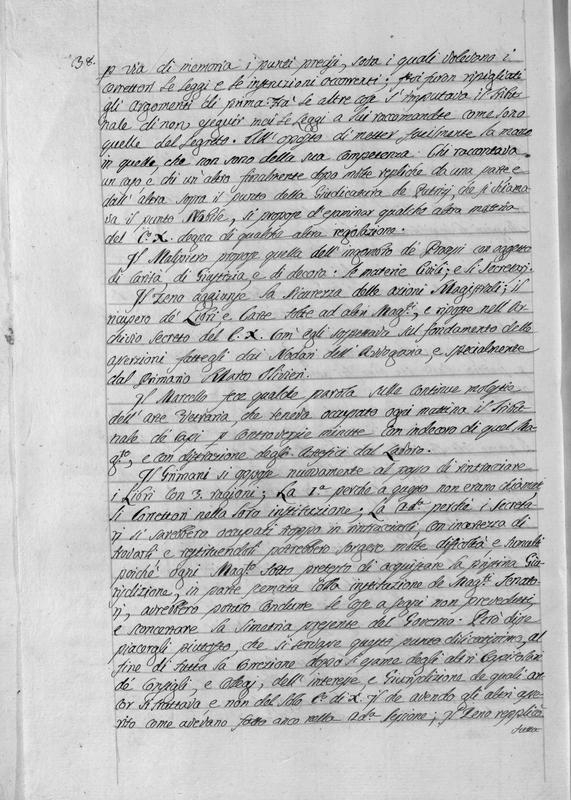 38.
p via di memoria i punti predj, sora i quali volevano i
Correttori le Leggi e le instruzioni occorrenti; furon ripigliati
gli Argomenti di prima. Frà le altre cose s'imputava il Tribu-
nale di non eseguir mai le Leggi a lui raccomandate come sono
quelle del Segreto. All'opposto di metter facilmente la mano
in quelle, che non sono della sua competenza. Chi raccontava
un caso, e chi un'altro finalmente dopo molte repliche da una parte e
dall'altra sopra il punto della Giudicatura de Patrizj, che si chiama-
va il punto Nobile, si propose d'esaminar qualche altra materia
del C. X. degna di qualche altra regolazione.
Il Malipiero propose quella dell' incontro de Progni con oggetto
di carità, di Giustizia, e di decoro. Le materie Civili; e li Secretarj.
Il Zeno aggiunse la Sicurezza delle azioni Magistrali; il
ricupero de' Libri e Carte tolte ad altri Mag.ti, e riposte nell'Ar-
chivio Secreto del C. X. Com'egli sospettava sul fondamento delle
asserzioni fattegli dai Nodari dell'Avogaria, e specialmente
dal Primario Marco Olivieri.
Il Marcello fece qualche parola sulle continue molestie
dell'arte Vetraria, che teneva occupato ogni mattina il Tribu-
nale de Capi p controversie minute con indecoro di quel Ma-
g.to, e con distrazione degli Artefici dal Lavoro.
Il Grimani si oppose nuovamente al passo di rintracciare
i Libri con 3. ragioni; La 1.a perchè a questo non erano chiamati
li Correttori nella loro instituzione; La 2.da perchè i Secreta-
rj si sarebbero occupati troppo in rintracciarli con incertezza di
trovarli e restituendoli potrebbero sorgere molte difficoltà e tumulti
poichè ogni Mag.to sotto pretesto di acquistare la pristina Giu-
risdizione, in parte scemata colla instituzione de Mag.ti Senato-
rj, avrebbero potuto condurre le cose a segni non preveduti,
e sconcertare la Simetria presente del Governo. Però disse
piacergli piutosto, che si serbasse questo punto dilicatissimo, al
fine di tutta la Correzione dopo l'esame degli altri Capitolari
de' Consigli, e Collegj, dell'interesse e Giurisdizione de quali an-
cor si trattava e non del solo C.o di X. Il che avendo gli altri asse-
rito come avevano fatto anco nella 2.da sessione; Il Zeno replicò
tutta